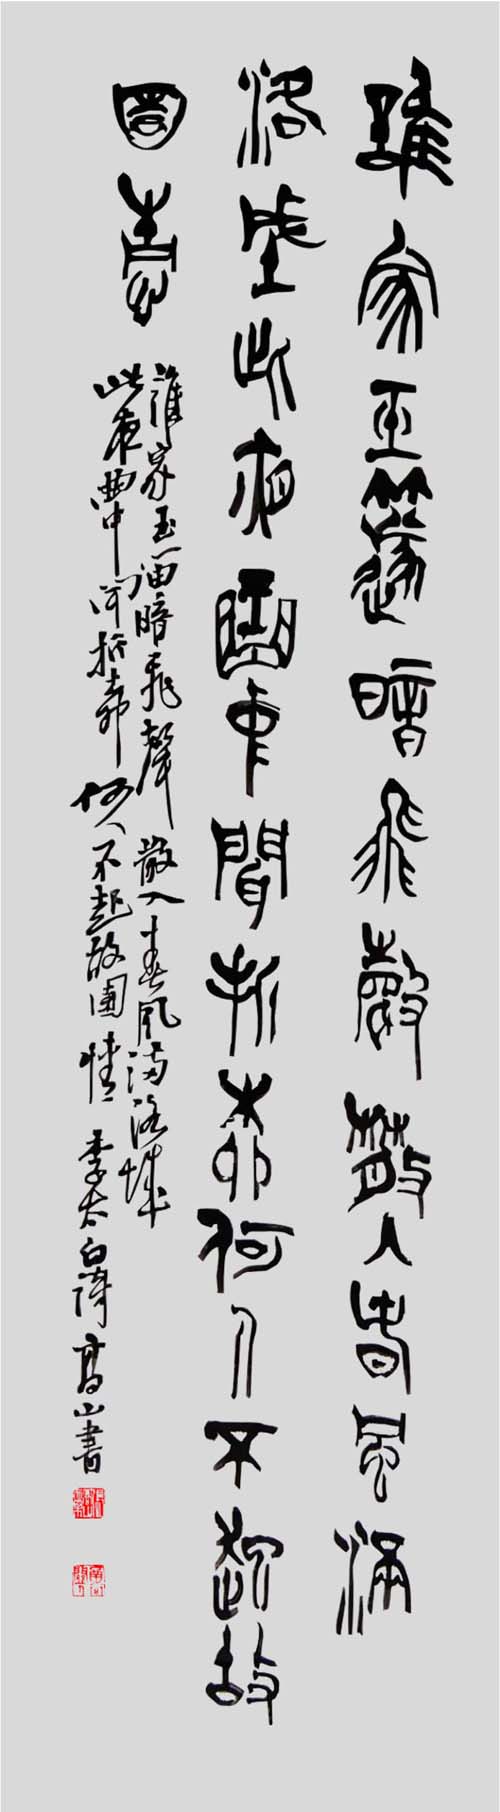 誰家玉篴暗飛聲散入春風滿
洛城此夜曲中聞折柳何人不起故
園情
誰家玉笛暗飛聲散入春風滿洛城
此夜曲中聞折柳何人不起故園情李太白詩高山書